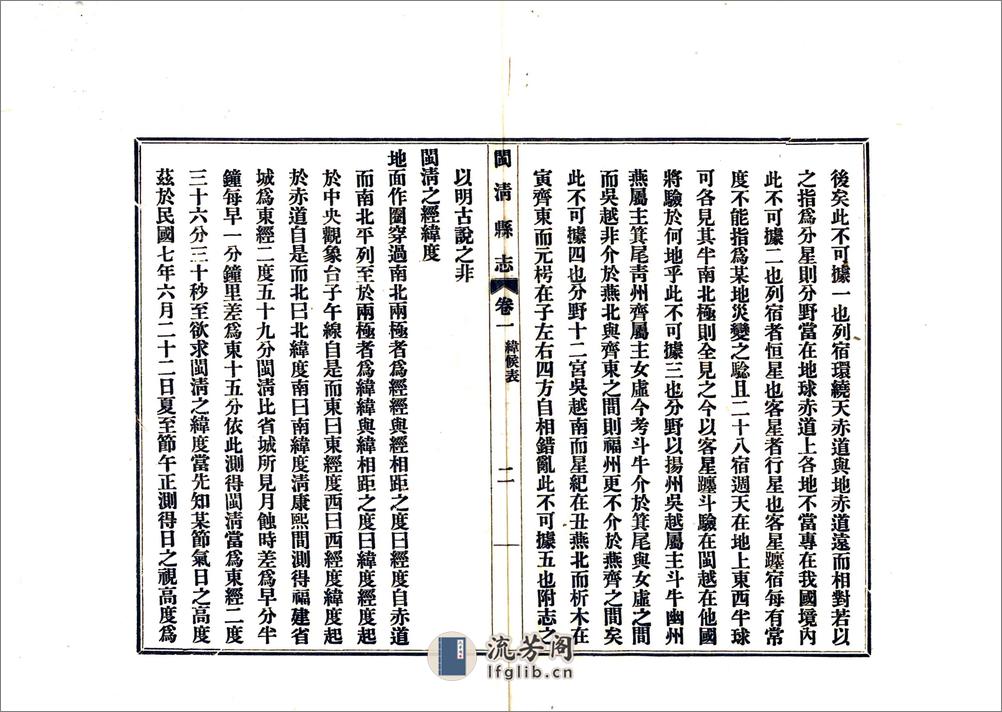 後矣此不可據一也列宿環繞天赤道與地赤道遠而相對若以
之指爲分星則分野當在地球赤道上各地不當專在我國境內
此不可據二也列宿者恒星也客星者行星也客星躔宿每有常
度不能指爲某地災變之騐且二十八宿週天在地上東西半球
可各見其半南北極則全見之今以客星躔斗驗在閩越在他國
將驗於何地乎此不可據三也分野以揚州吳越屬主斗牛幽州
燕屬主箕尾青州齊屬主女虛今考斗牛介於箕尾與女虛之間
而吳越非介於燕北與齊東之間則福州更不介於燕齊之間矣
此不可據四也分野十二宮吳越南而星紀在丑燕北而析木在
寅齊東而元枵在子左右四方自相錯亂此不可據五也附志之
閩清縣志 卷一 緯候表 二
以明古說之非
閩清之經緯度
地面作圈穿過南北兩極者爲經經與經相距之度曰經度自赤道
而南北平列至於兩極者爲緯緯與緯相距之度曰緯度經度起
於中央觀象台子午線自是而東曰東經度西曰西經度緯度起
於赤道自是而北曰北緯度南曰南緯度清康熙間測得福建省
城爲東經二度五十九分閩清比省城所見月蝕時差爲早分半
鐘每早一分鐘里差爲東十五分依此測得閩清當爲東經二度
三十六分三十秒至欲求閩清之緯度當先知某節氣日之高度
茲於民國七年六月二十二日夏至節午正測得日之視高度爲
流芳閣
lfglib.cn